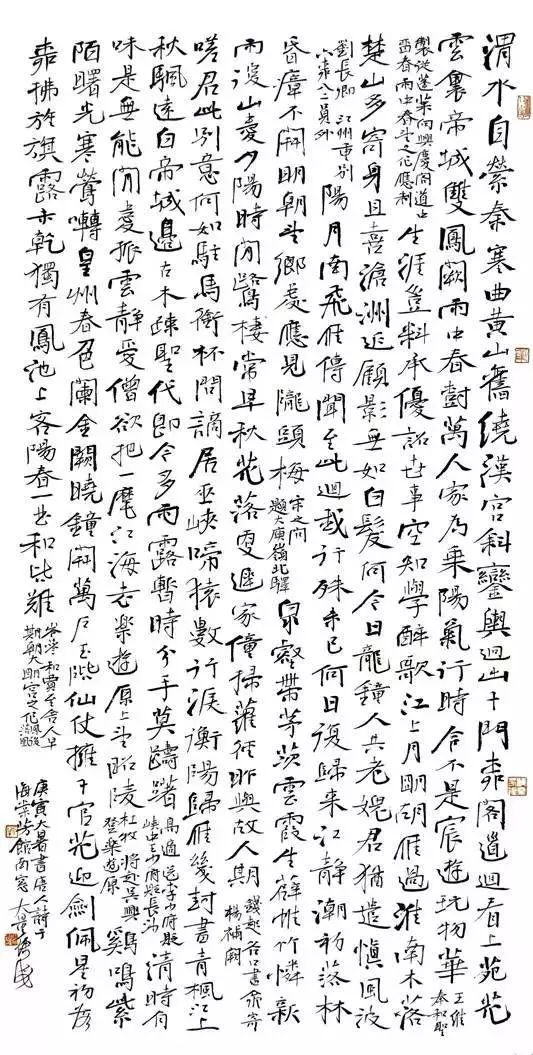 渭水自縈秦塞曲黃山舊繞漢宮斜鑾輿迥出千門柳閣道迴看上苑花
雲裏帝城雙鳳闕雨中春樹萬人家為乘陽氣行時令不是宸遊玩物華
王維
奉和聖
製從蓬萊向興慶閣道中
留春雨中春望之作應制
生涯豈料承優詔世事空知學醉歌江上月明胡雁過淮南木落
楚山多寄身且喜滄洲近顧影無如白髮何今日龍鍾人共老媿君猶遣慎風波
劉長卿江州重別
六柳八二員外
陽月南飛雁傳聞至此迴我行殊未已何日復歸來江靜潮初落林
昏瘴不開明朝望鄉處應見隴頭梅
宋之問
題大庾嶺北驛
泉壑帶茅茨雲霞生薜帷竹憐新
雨後山愛夕陽時閒鷺棲常早秋花落更遲家僮掃蘿徑昨與故人期
錢起谷口書齋寄
楊補闕
嗟君此別意何如駐馬銜杯問謫居巫峽啼猿數行淚衡陽歸雁幾封書青楓江上
秋颿遠白帝城邊古木疎聖代即今多雨露暫時分手莫躊躇
高適送李少府貶
峽中王少府貶長沙
清時有
味是無能閒愛孤雲靜愛僧欲把一麾江海去樂遊原上望昭陵
杜牧將赴吳興
登樂遊原
雞鳴紫
陌曙光寒鶯囀皇州春色闌金闕曉鐘開萬戶玉階仙仗擁千官花迎劍佩星初落
柳拂旌旗露未乾獨有鳳池上客陽春一曲和皆難
岑參和賈至舍人早
期朝大明宮之作
庚寅大暑書唐人詩于
海棠芳館南窗